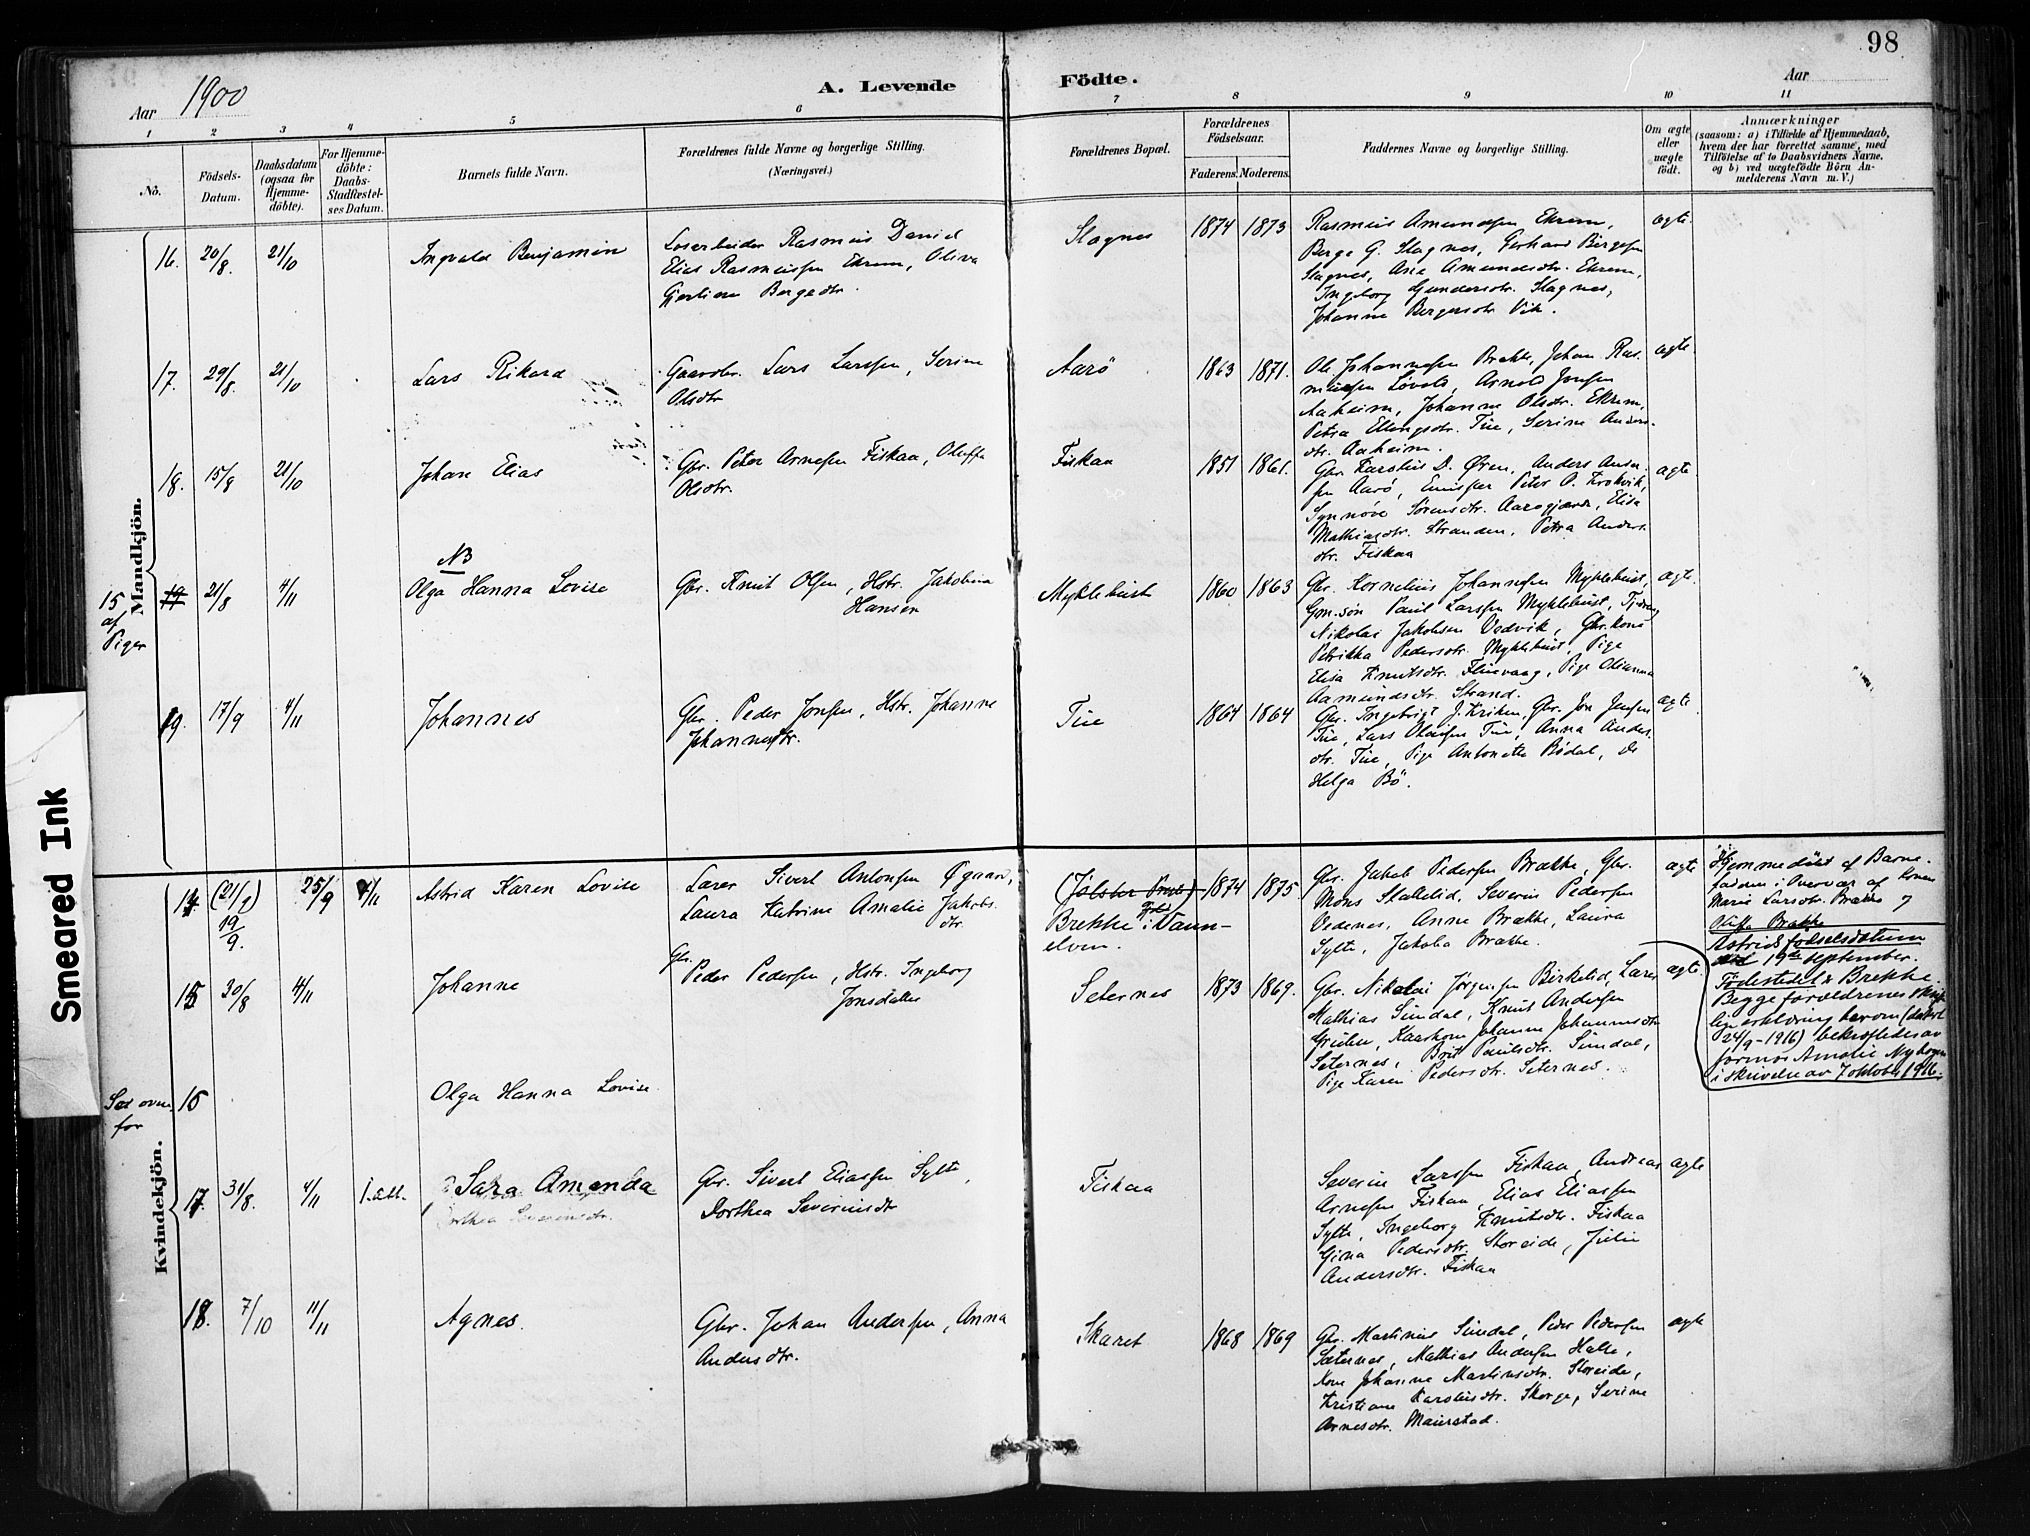 98
Aar 1900
A. Levende Födte.
Aar
1 2 3 4 5 6 7 8 9 10 11
No.
Födsels-Datum.
Daabsdatum (ogsaa for Hjemme-döbte).
For Hjemme-döbte: Daabs-Stadfæstel-ses Datum.
Barnets fulde Navn.
Forældrenes fulde Navne og borgerlige Stilling.
(Næringsvei.)
Forældrenes Bopæl.
Forældrenes Födselsaar.
Faderens. Moderens.
Faddernes Navne og borgerlige Stilling.
Om ægte eller uægte födt.
Anmærkninger
(saasom: a) i Tilfælde af Hjemmedaab,
hvem der har forrettet samme, med
Tilföielse af to Daabsvidners Navne.
og b) ved uægtefödte Börn An-
melderens Navn m. V.)
Mandkjön.
16. 20/8. 21/10 Ingvald Benjamin
Rasmus David
Elias Rasmussen Ekrem, Oliva
Bergedtr.
Slagnes 1874 1873
Rasmus Amundsen Ekrem,
Berge G. Slagnes, Gerhard Bergesen
Slagnes, Ane Amundsdtr. Ekrem,
Ingeborg Gundersdtr. Slagnes,
Johanne Bergersdtr. Vik.
ægte
17. 29/8. 21/10 Lars Rikard
Gaardbr. Lars Larssen, Serine
Olsdtr
Aarö 1863 1871.
Ole Johannessen Brekke, Johan Ras-
mussen Lövold, Arnold Jonsen
Aaheim, Johanne Olsdtr. Ekrem,
Petra Ellingsdtr. Tue, Serine Anders-
dtr. Aaheim.
ægte
18. 15/8 21/10 Johan Elias
Gbr. Peter Arnesen Fiskaa, Oluffa
Olsdtr.
Fiskaa 1851 1861.
Gbr. Karolus D. Øren, Anders
Aarö, Peter O. Krokvik,
Synnöve Sörensdtr. Aarögjærde, Elisa
Mathiasdtr. Stranden, Petra Anders-
dtr. Fiskaa
ægte
NB
15 af Piger
19 21/8 4/11 Olga Hanna Lovise
Gbr. Knut Olsen, Hstr. Jakobina
Hansen
Myklebust 1860 1863
Gbr. Kornelius Johannessen Myklebust,
Gm.sön Paul Larssen Myklebust,
Nikolai Jakobsen Vedvik, Gbr.kone
Petrikka Pedersdtr. Myklebust, Pige
Elisa Knutsdtr. Fluevaag, Pige Olianna
Aamundsdtr. Strand.
ægte
19. 17/9 4/11 Johannes
Gbr. Peder Jonsen, Hstr. Johanne
Johannesdtr.
Tue 1864 1864
Gbr. Ingebrigt J. Kriken, Gbr. Jon Jensen
Tue, Lars Olaisen Tue, Anna Anders-
dtr. Tue, Pige Antonette Bödal, do
Helga Bö.
ægte
Kvindekjön.
14. (21/9) 19/9. 25/9 4/11 Astrid Karen Lovise
Lærer Sivert Antonsen Øgaan,
Laura Katrine Amalie Jakobs-
dtr.
(Jölster Præst)
Brekke i Vann-
elven.
1874 1875
Gbr. Jakob Pedersen Brække, Gbr.
Mons Stallelid, Severin Pedersen
Vedenes, Anne Brække, Laura
Sylte, Jakoba Brække.
ægte
Hjemmedöbt af Barne-
faderen i Overvær af Konen
Marie Larsdtr. Brække og
Oluffa Brække
Astrids födselsdatum
19de September.
Födestedet Brekke
Begge forældrenes skrift-
lige erklæring herom (datert
24/9-1916) bekræftedes av
formor Amalie Nybogen
i skrivelse av 7 oktober 1916.
15 30/8 4/11 Johanne
Gbr.
Peder Pedersen, Hstr. Ingeborg
Jonsdatter
Seternes 1873 1869.
Gbr. Nikolai Jörgensen Birkelid, Lærer
Mathias Sundal, Knut Andersen
Johanne Johannesdtr
Seternes, Brit Paulsdtr. Sundal,
Pige Karen Pedersdtr. Seternes.
ægte
See oven-
for
16 Olga Hanna Lovise
17. 31/8. 4/11 Sara Amanda
Dorthea Severinsdtr.
Gbr. Sivert Eliassen Sylte,
Dorthea Severinsdtr
Fiskaa
Severin Larssen Fiskaa, Andreas
Arnesen Fiskaa, Elias Eliassen
Sylte, Ingeborg Knutsdtr. Fiskaa
Gina Pedersdtr. Storeide, Julie
Andersdtr. Fiskaa
ægte
18. 7/10 11/11 Agnes.
Gbr. Johan Andersen, Anna
Andersdtr.
Skaret 1868 1869
Gbr. Martinus Sundal, Peder Pedersen
Sæternes, Mathias Andersen Halse,
Kone Johanne Martinsdtr. Storeide,
Kristiane Karolusdtr. Skorge, Serine
Arnesdtr. Maurstad.
ægte
Smeared Ink